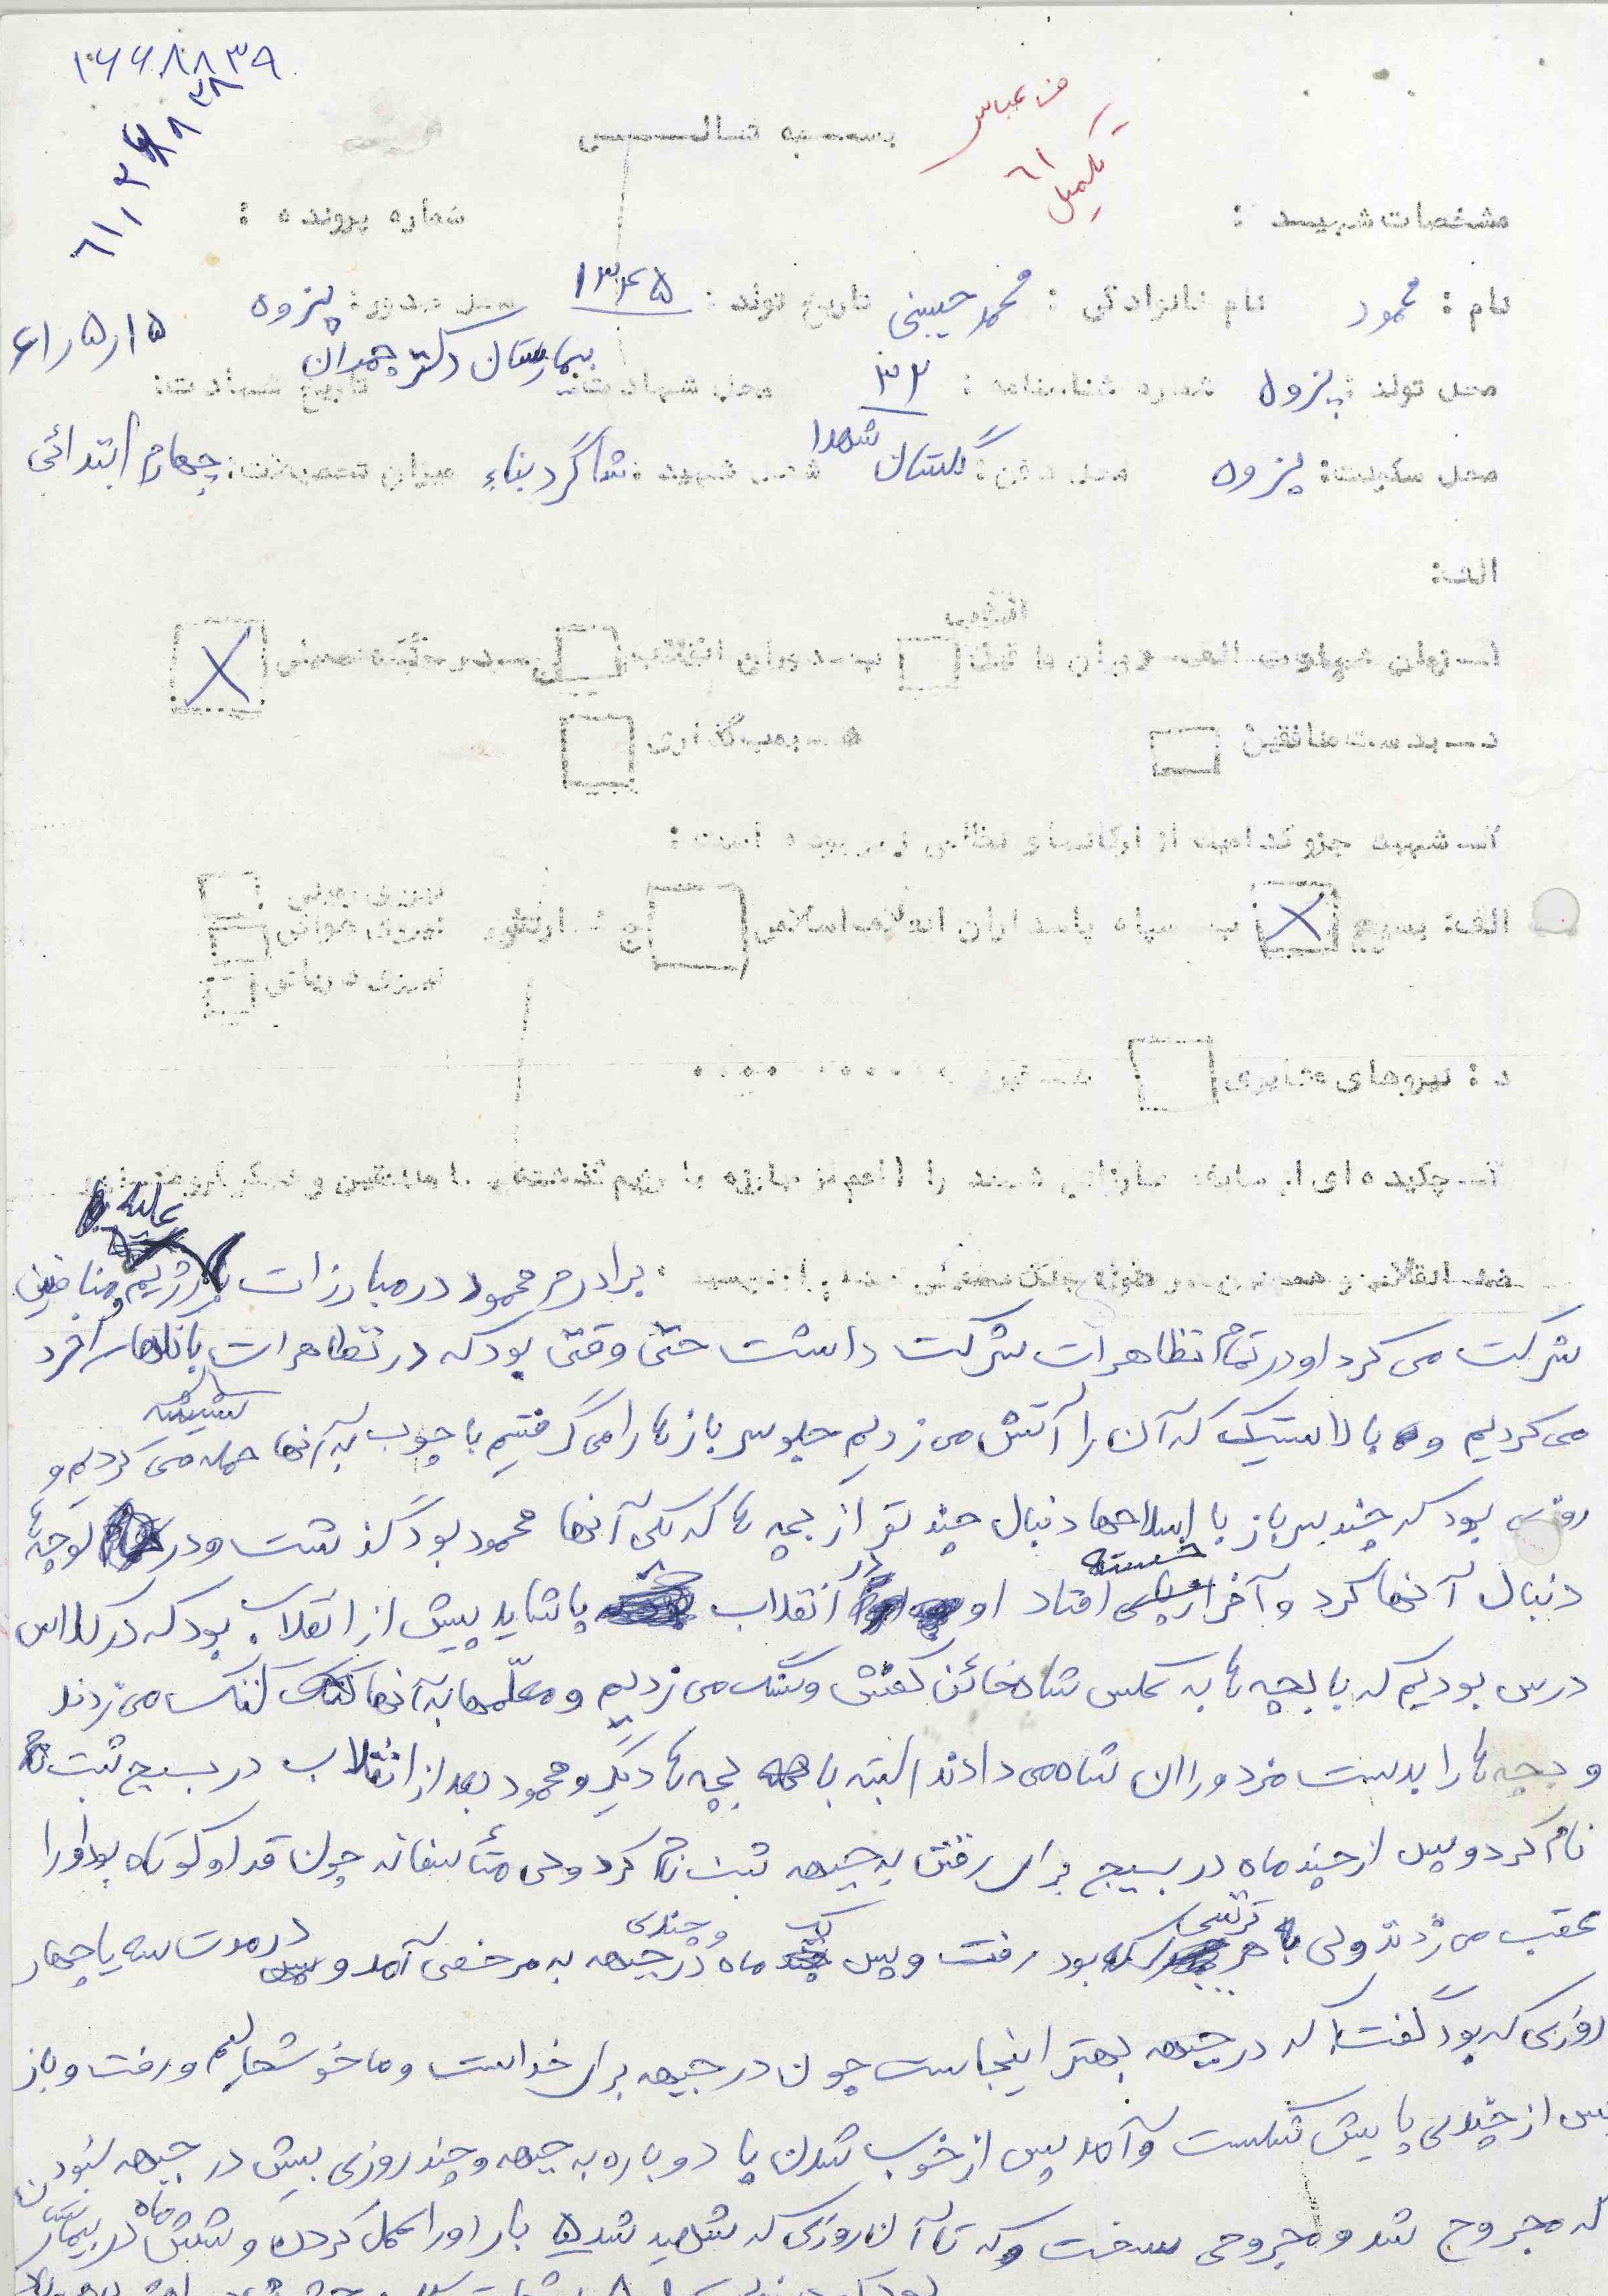 ۱۶۶۸۸۳۹
بسمه تعالی
تکمیل ۶۱
مشخصات شهید : شماره پرونده :
نام : محمود نام خانوادگی : محمد حسینی تاریخ تولد : ۱۳۴۵ محل صدور : پزوه
محل تولد : پزوه شماره شناسنامه : ۳۲ محل شهادت : بیمارستان دکتر چمران تاریخ شهادت : ۱۵ر۵ر۶۱
محل سکونت : پزوه محل دفن : گلستان شهدا شغل شهید : شاگرد بناء میزان تحصیلات : چهارم ابتدائی
الف:
۱ـ زمان شهادت الف ـ دوران ما قبل انقلاب ب ـ دوران انقلاب ـ در جنگ تحمیلی X
د ـ بدست منافقین ه ـ بمب گذاری
۲ـ شهید جزو کدامیک از ارگانها و نظامی زیر بوده است :
الف: بسیج X ب ـ سپاه پاسداران انقلاب اسلامی ج : ارتش نیروی زمینی نیروی هوائی نیروی دریائی
د : نیروهای عشایری
۳ـ چکیده ای از سابقه مبارزاتی شهید را اعم از مبارزه با رژیم گذشته ، با منافقین و دیگر گروههای
ضد انقلابی و همچنین در طول جنگ تحمیلی را بنویسید : برادرم محمود در مبارزات علیه رژیم و منافقین
شرکت می کرد او در تمام تظاهرات شرکت داشت حتی وقتی بود که در تظاهرات
می کردیم و با لاستیک که آن را آتش می زدیم جلو سربازها را می گرفتیم با چوب شیشه به آنها حمله می کردیم و
روزی بود که چند سرباز با اسلحه دنبال چند نفر از بچه ها که یکی آنها محمود بود گذاشت و در کوچه ها
دنبال آنها کرد و آخر از پای خسته افتاد او در انقلاب یا شاید پیش از انقلاب بود که در کلاس
درس بودیم که با بچه ها به عکس شاه خائن کفش و سنگ می زدیم و معلّمها به آنها کتک می زدند
و بچه ها را بدست مزدوران شاه می دادند البته با بچه ها دیگر و محمود بعد از انقلاب در بسیج ثبت
نام کرد و پس از چند ماه در بسیج برای رفتن به جبهه ثبت نام کرد ولی متأسفانه چون قد او کوتاه بود او را
عقب می زدند ولی با هر ترتیبی که بود رفت و پس یک ماه و چندی در جبهه به مرخصی آمد و در مدت سه یا چهار
روزی که بود گفت که در جبهه بهتر اینجاست چون در جبهه برای خداست و ما خوشحالیم و رفت و باز
پس از چندی پایش شکست و آمد پس از خوب شدن پا دوباره به جبهه و چند روزی بیش در جبهه نبود
که مجروح شد و مجروحی سخت که تا آن روزی که شهید شد ۵ بار او را عمل کردند و شش ماه در بیمارستان